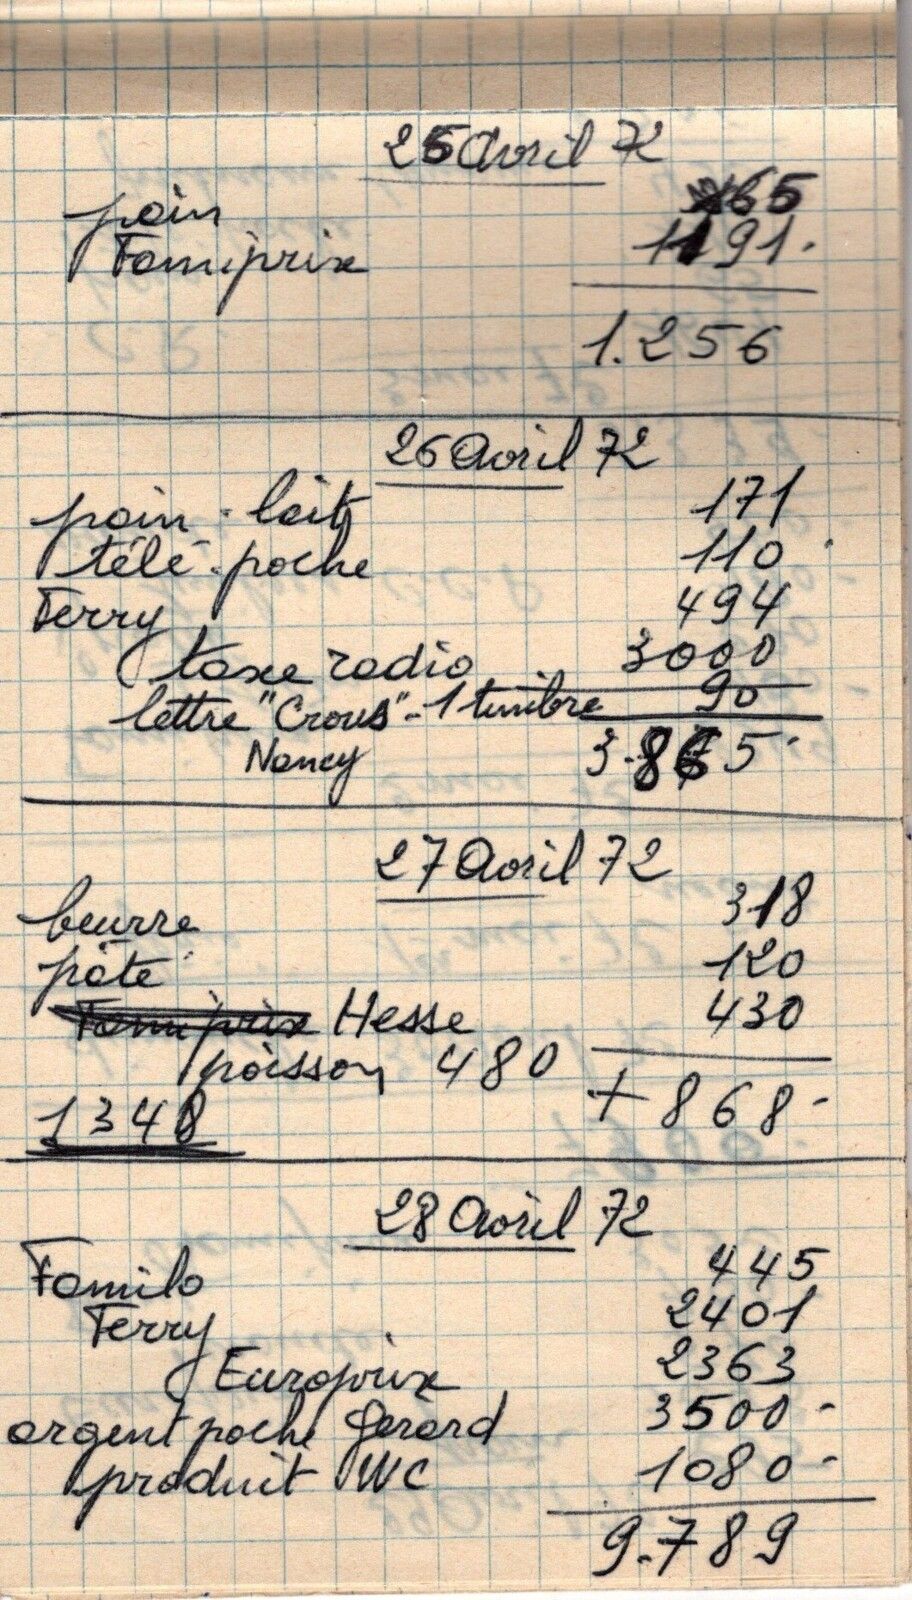 25 Avril 72
pain 65
Famiprix 1191.
1.256
26 Avril 72
pain - lait 171
télé-poche 110
Ferry 494
taxe radio 3000
lettre "Crous" - 1 timbre 90
Nancy 3.865
27 Avril 72
beurre 318
pâté 120
Famiprix Hesse 430
poisson 480
1348 + 868-
28 Avril 72
Familo 445
Ferry 2401
Europrix 2363
argent poche Gérard 3500-
produit WC 1080-
9.789